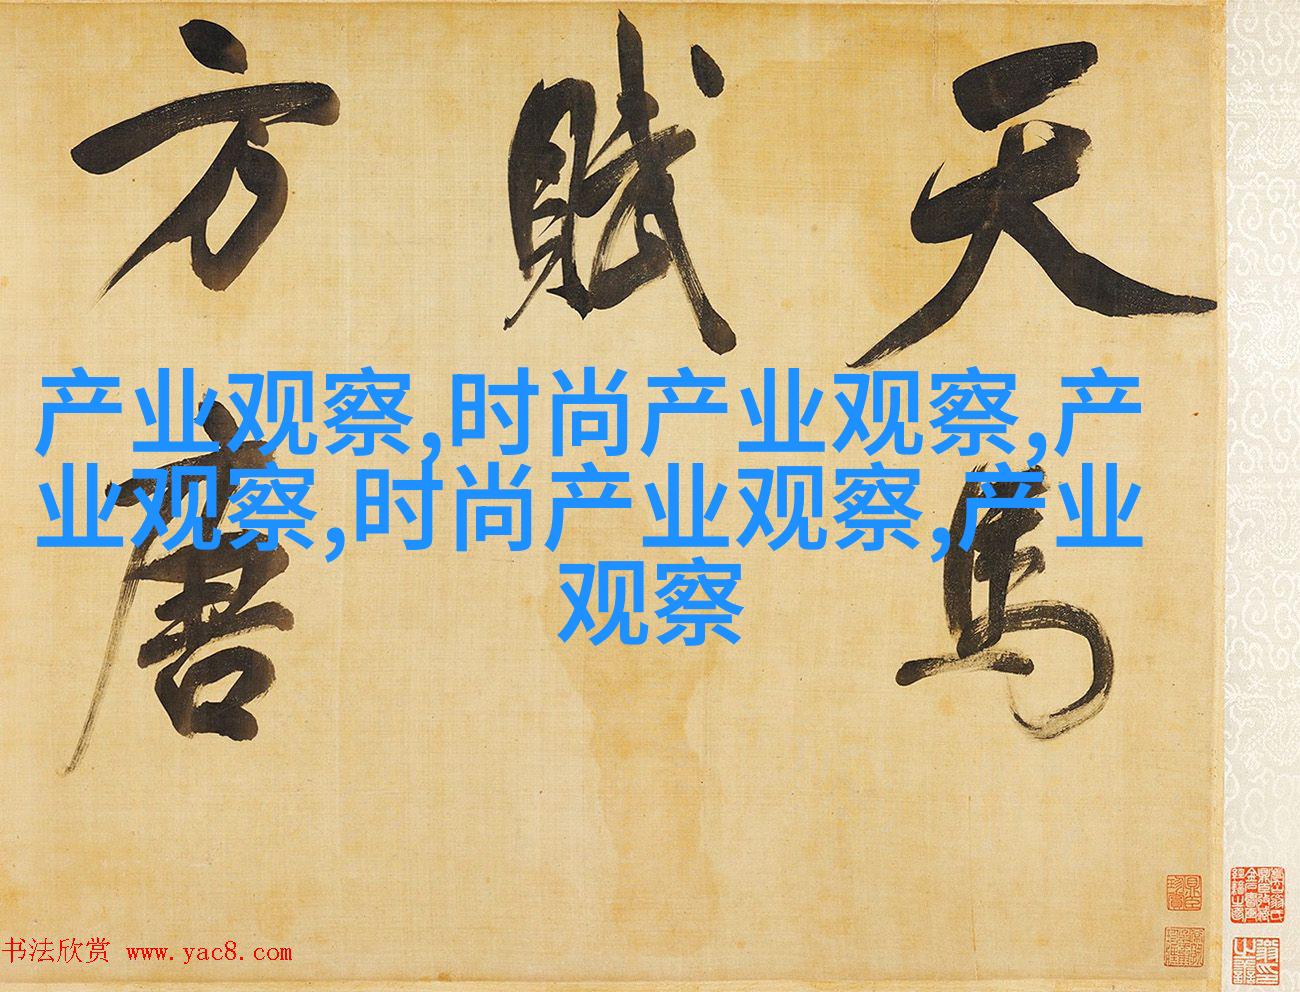 天馬
賦
方唐
产业观察,时尚产业观察,产
业观察,时尚产业观察,产业
观察
书法欣赏 www.yac8.com